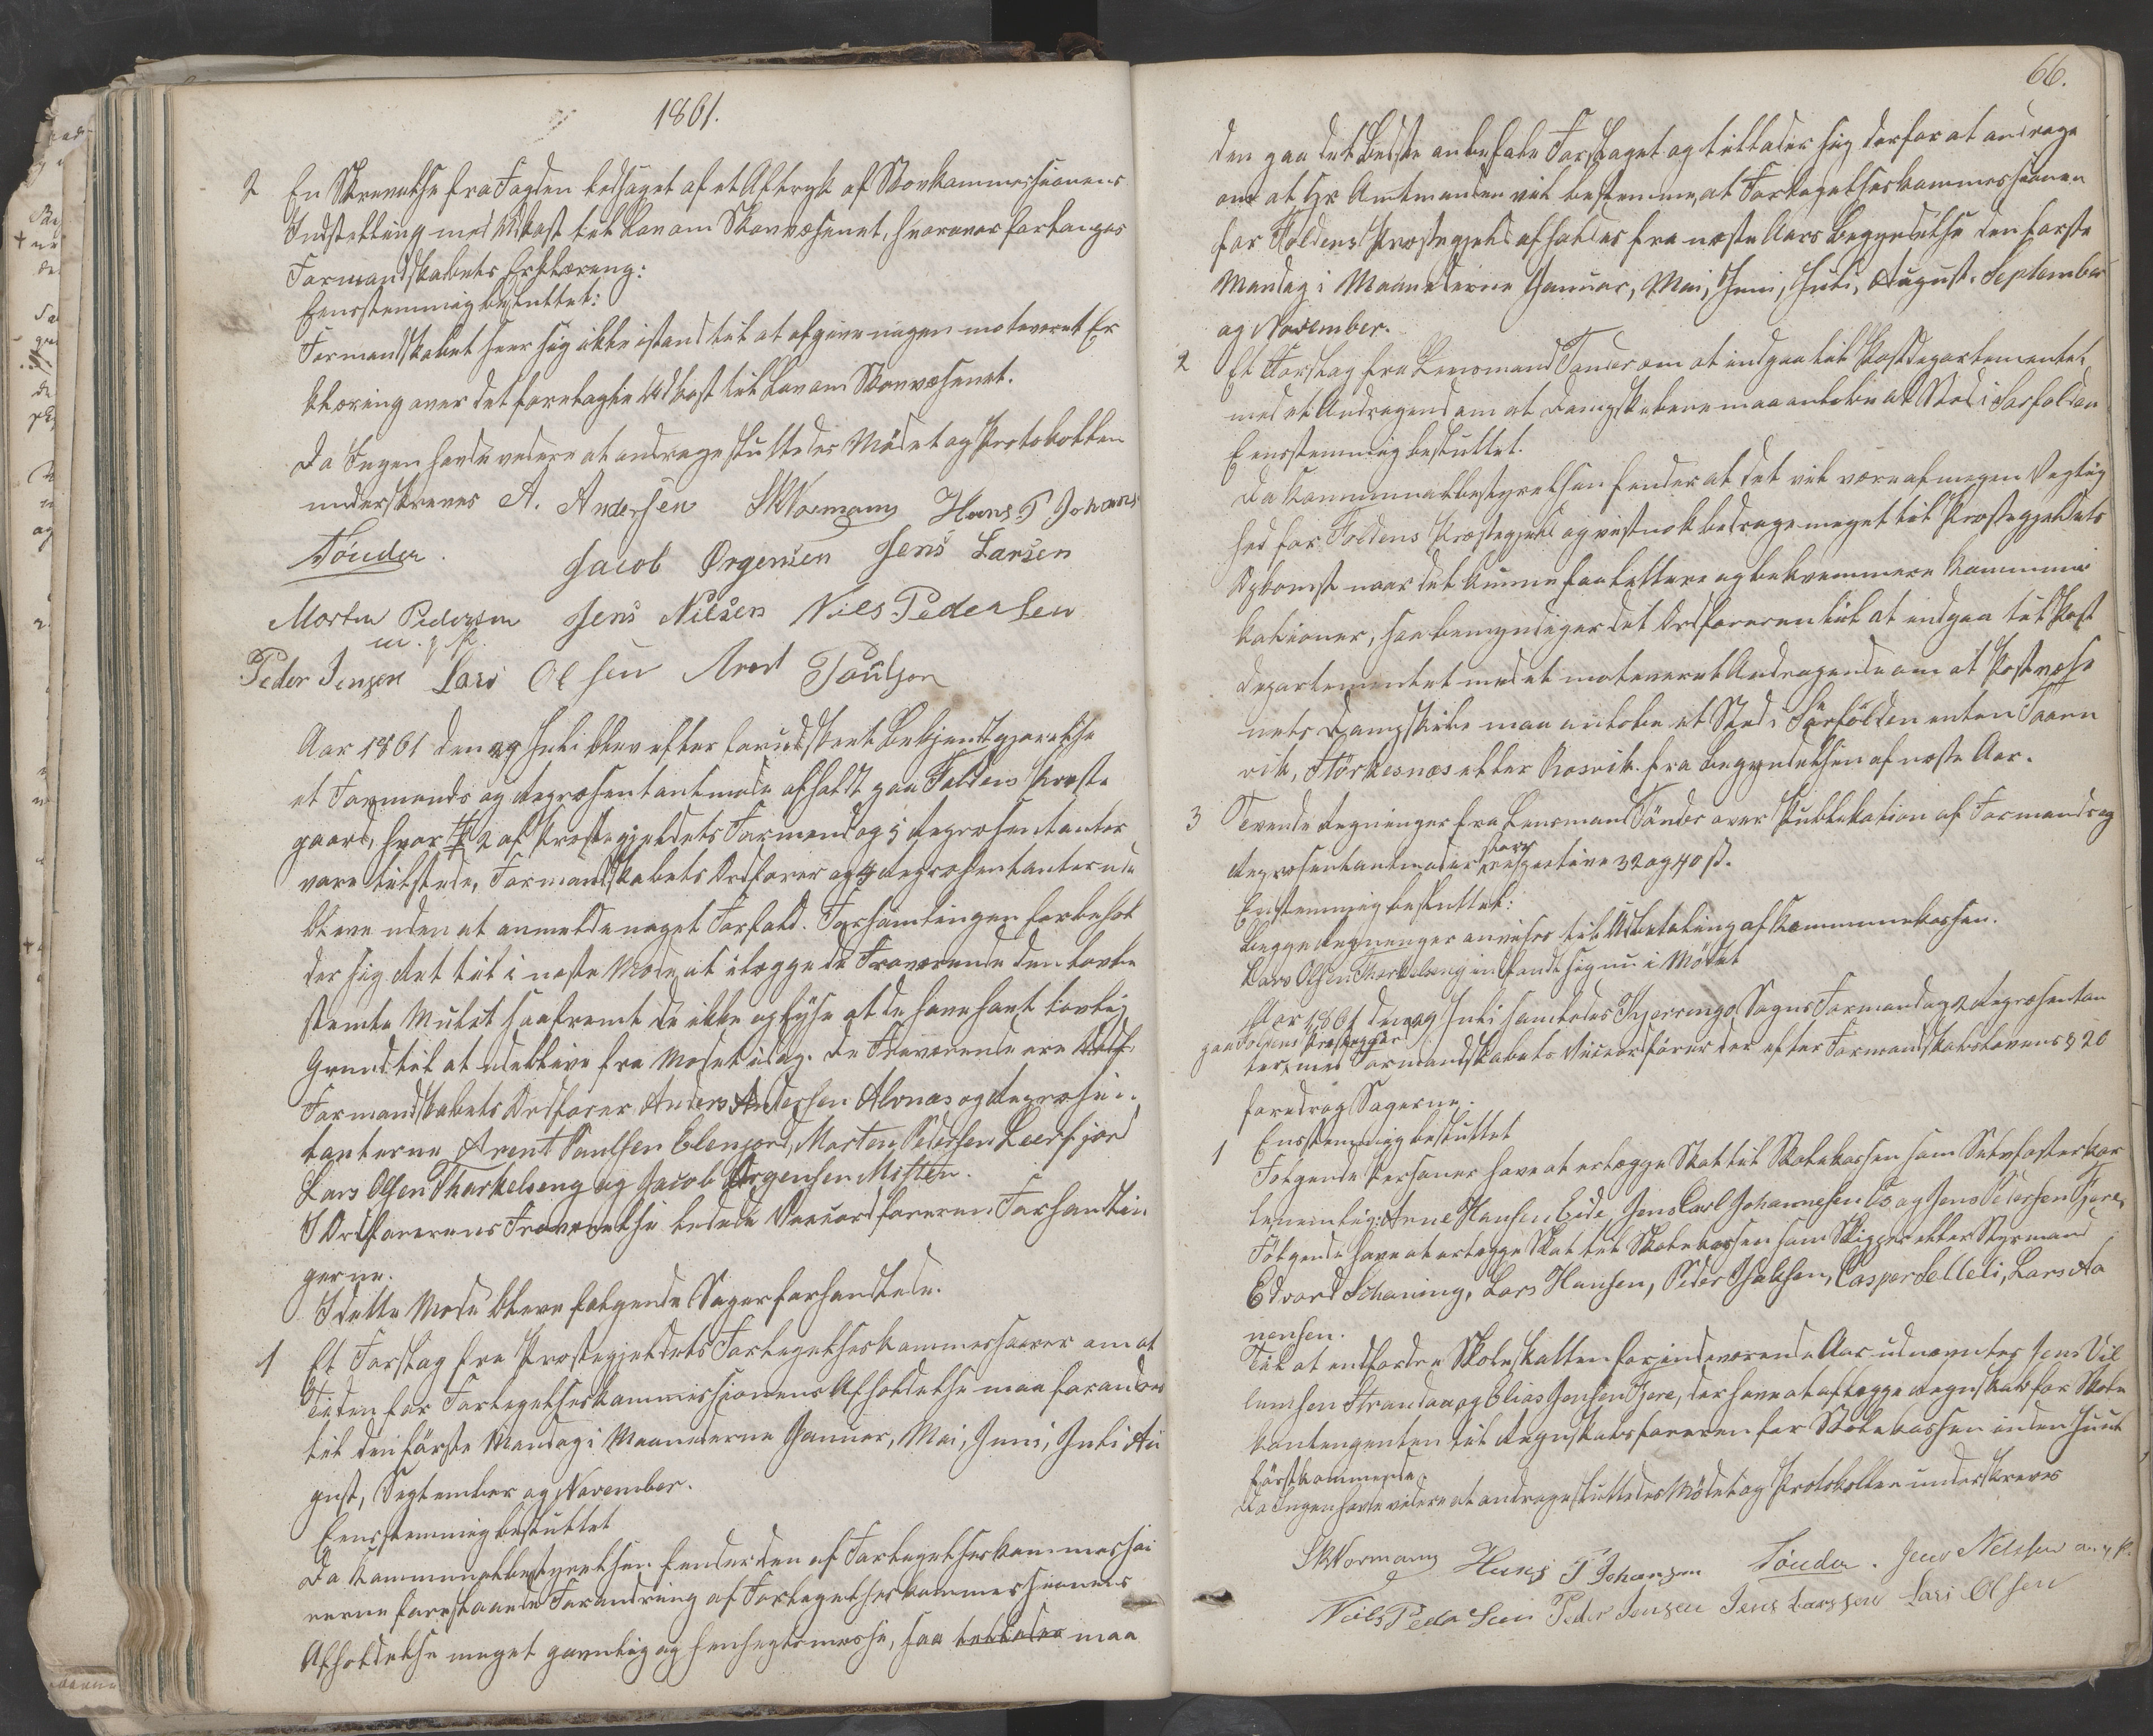 1861.
2 En Skrivelse fra Fogden ledsaget af et Aftryk af Skovkommissionens
Indstilling med Udkast til Lov om Skovvæsenet, hvorover forlanges
Formandskabets Erklæring:
Eensstemmig besluttet:
Formandskabet seer sig ikke istand til at afgive nogen motiveret Er
klæring over det forelagte Udkast til Lov om Skovvæsenet.
Da Ingen havde videre at andrage sluttedes Mödet og Protokollen
underskreves A. Andersen SKNormann Hans P Johans
Tönder. Jacob Ørgensen Jens Larsen
Morten Pedersen Jens Nilsen Niels Pedersen
m. p. P.
Peder Jensen Lars Olsen Arent Poulsen
Aar 1861 den 29 Juli blev efter forudskeet Bekjendtgjørelse
et Formands og Repræsentantmøde afholdt paa Foldens Præste
gaard, hvor 2 af Præstegjeldets Formend og 5 Repræsentanter
vare tilstede, Formandskabets Ordfører og 4 Repræsentanter ude
bleve uden at anmelde noget Forfald. Forsamlingen forbehol
der sig Ret til i næste Møde, at ilægge de Fraværende den lovbe
stemte Mulct saafremt de ikke oplyse at de have havt lovlig
Grund til at udeblive fra Mødet idag. De Fraværende ere Ordf:
Formandskabets Ordfører Anders Andersen Alvnæs og Repræsen-
tanterne Arent Paulsen Elvenfjord, Morten Pedersen Leerfjord
Lars Olsen Tharkelseng og Jacob Ørgensen Misten.
I Ordførerens Fraværelse ledede Viceordføreren Forhandlin
gerne.
I dette Møde bleve følgende Sager forhandlede.
1 Et Forslag fra Præstegjeldets Forligelseskommissairer om at
Tiden for Forligelseskommissionens Afholdelse maa forandres
til den förste Mandag i Maanederne Januar, Mai, Juni, Juli Au
gust, September og November.
Eensstemmig besluttet
Da Kommunalbestyrelsen finder den af Forligelseskommissai
rerne foreslaaede Forandring af Forligelseskommissionens
Afholdelse meget gavnlig og hensigtsmæssi, saa tillader maa
66.
den paa det Bedste anbefale Forslaget og tillader sig derfor at andrage
om at Hr Amtmanden vil bestemme, at Forligelseskommissionen
for Foldens Præstegjeld afholdes fra næste Aars Begyndelse den første
Mandag i Maanederne Januar, Mai, Juni, Juli, August, September
og November.
2 Et Forslag fra Lensmand Tönder om at indgaa til Postdepartementet
med et Andragend om at Dampskibene maa anløbe et Sted i Sørfolden
Eensstemmig besluttet.
Da Kommunalbestyrelsen finder at det vil være af megen Vigtig
hed for Foldens Præstegjeld og vistnok bidrage meget til Præstegjeldets
Opkomst naar det kunne faa lettere og bekvemmere Kommuni
kationer, saa bemyndiger det Ordføreren til at indgaa til Post
departementet med et motiveret Andragende om at Postvæse
nets Dampskibe maa anløbe et Sted i Sörfölden enten Taarn
vik, Störkesnæs eller Røsvik fra Begyndelsen af næste Aar.
3 Tvende Regninger fra Lensmand Tönder over Publikation af Formands og
Repræsentantmøder stor respective 32 og 40 ß.
Enstemmig besluttet:
Begge Regninger anvises til Udbetaling af Kommunekassen.
Lars Olsen Tharkelseng indfandt sig nu i Mödet
Aar 1861 den 29 Juli samledes Kjerringø Sogns Formand og 2 Repræsentan
paa Foldens Præstegaar
ter, med Formandskabets Viceordförer der efter Formandskabslovens § 20
foredrog Sagerne.
1 Enstemmig besluttet
Følgende Personer have at erlægge Skat til Skolekassen som Selvfosterkar
le nemlig: Arne Hansen Eide, Jens Carl Johannesen Es og Jens Pedersen Fjere,
Fölgende have at erlægge Skat til Skolekassen som Skipper eller Styrmand
Edvard Schøning, Lars Hansen, Peder Isaksen, Casper Selleli, Lars Aa
nensen.
Til at indfordre Skoleskatten for indeværende Aar udnævntes Jens Vil
lumsen Strandaa og Elias Jensen Fjere, der have at aflægge Regnskab for Skole
kontingenten til Regnskabsføreren for Skolekassen inden Juul
förstkommende.
Da Ingen havde videre at andrage sluttedes Mödet og Protokollen underskreves
SKNormann Hans P Johansen Tönder. Jens Nilssen m. p. P.
Niels Pedersen Peder Jensen Jens Larssen Lars Olsen